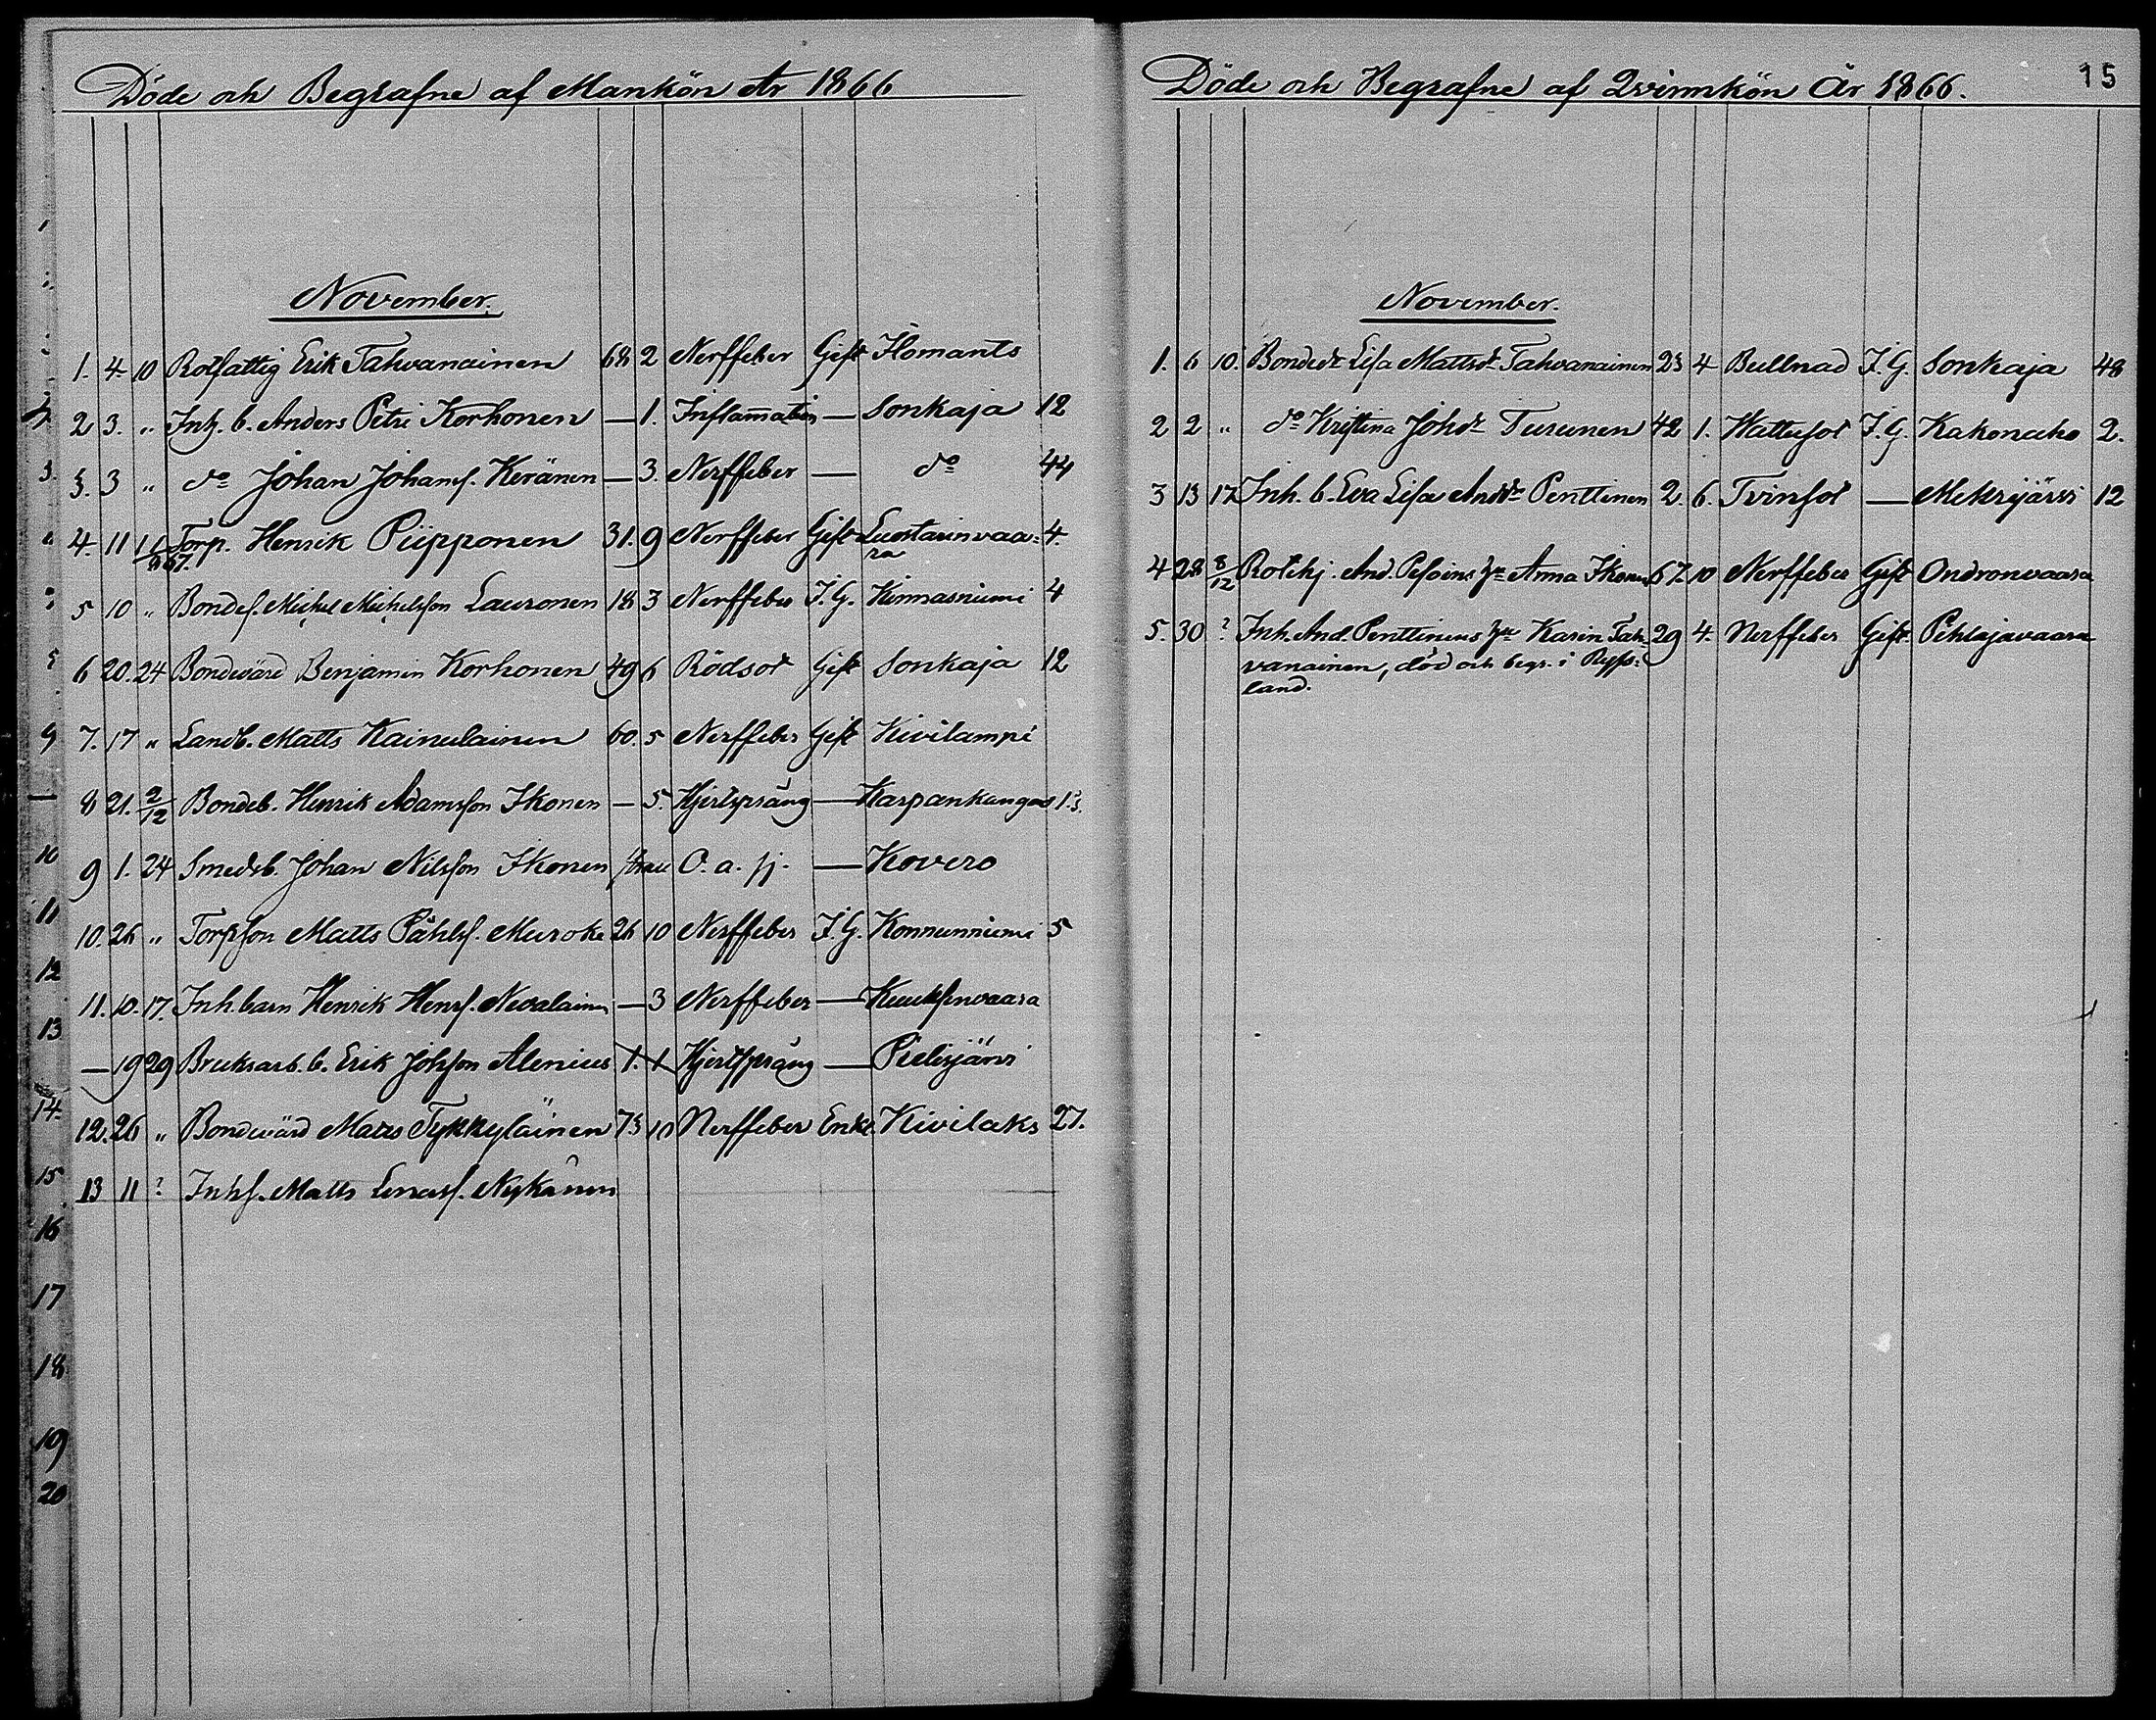 Döde och Begrafne af Mankön År 1866
November.
1. 4. 10 Rotfattig Erik Tahvanainen 68 2 Nerffeber Gift Ilomants
2 3. " Inh. b. Anders Petri Korhonen — 1. Inflam̄ation — Sonkaja 12
3. 3 " do Johan Johansf. Keränen — 3. Nerffeber — do 44
4. 11 Torp. Henrik Piipponen 31. 9 Nerffeber Gift Luostarinvaa= 4.
1867. ra
5 10 " Bondes. Michel Michelsson Lauronen 18 3 Nerffeber I. G. Kinnasniemi 4
6 20. 24 Bondevärd Benjamin Korhonen 49 6 Rödsot Gift Sonkaja 12
7. 17 " Landb. Matts Kainulainen 60. 5 Nerffeber Gift Kivilampi
8 21. 2/12 Bondeb. Henrik Adamsson Ikonen — 5. Hjertsprång — Karpankangas 13.
9 1. 24 Smedsb. Johan Nilsson Ikonen O. a. sj. — Kovero
10. 26 " Torpson Matts Påhlsf. Muroke 26 10 Nerffeber I. G. Konnunniemi 5
11. 10. 17. Inh. barn Henrik Henrf. Nevalainen — 3 Nerffeber — Kuuksenvaara
— 19 29 Bruksarb. b. Erik Johsson Alenius 1. 1 Hjertsprång — Pielisjärvi
12. 26 " Bondevärd Matts Tykkyläinen 73 10 Nerffeber Enkl. Kivilaks 27.
13 11 ? Inhs. Matts Nykänen
Döde och Begrafne af Qvinnkön År 1866. 15
November.
1. 6 10. Bondedr Lisa Mattsdr Tahvanainen 23 4 Bullnad I. G. Sonkaja 48
2 2 " do Kristina Johdr Turunen 42 1. Wattusot I. G. Kakonaho 2.
3 13 17 Inh. b. Eva Lisa Andrdr Penttinen 2. 6. Tvinsot — Mekrijärvi 12
4 28 8/12 Rothj. And. Pesoins hu Anna Ikonen 67 10 Nerffeber Gift Ondronvaara
5. 30 ? Inh. And. Penttinens hu Karin Tah- 29 4. Nerffeber Gift Pehlajavaara
vanainen, död och begr. i Ryss=
land.
1
3.
9
10
11
12
13
14.
15
16
17
18
19
20